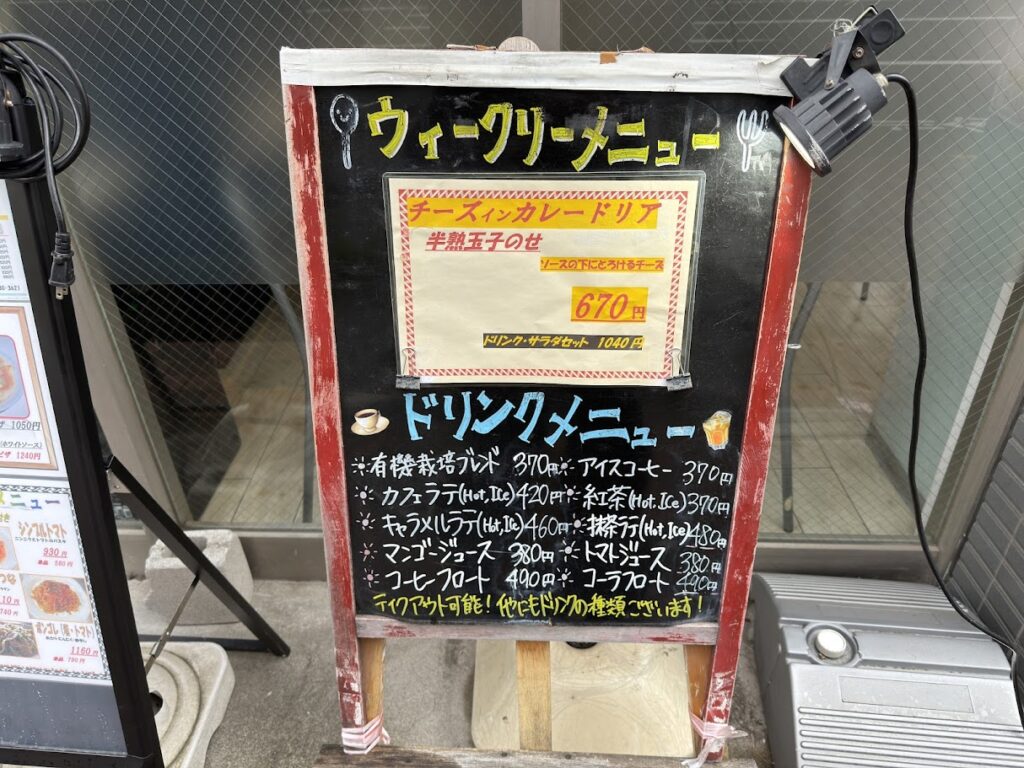 ウィークリーメニュー
チーズインカレードリア
半熟玉子のせ
ソースの下にとろけるチーズ
670円
ドリンク・サラダセット 1040円
ドリンクメニュー
有機栽培ブレンド 370円
アイスコーヒー 370円
カフェラテ(Hot,Ice) 420円
紅茶(Hot,Ice) 370円
キャラメルラテ(Hot,Ice) 460円
抹茶ラテ(Hot,Ice) 480円
マンゴージュース 380円
トマトジュース 380円
コーヒーフロート 490円
コーラフロート 490円
テイクアウト可能！他にもドリンクの種類ございます！
1050円
(ホワイトソース)
ピザ 1240円
メニュー
シンプルトマト
930円
単品 580円
ボンゴレ
1160円
単品 790円